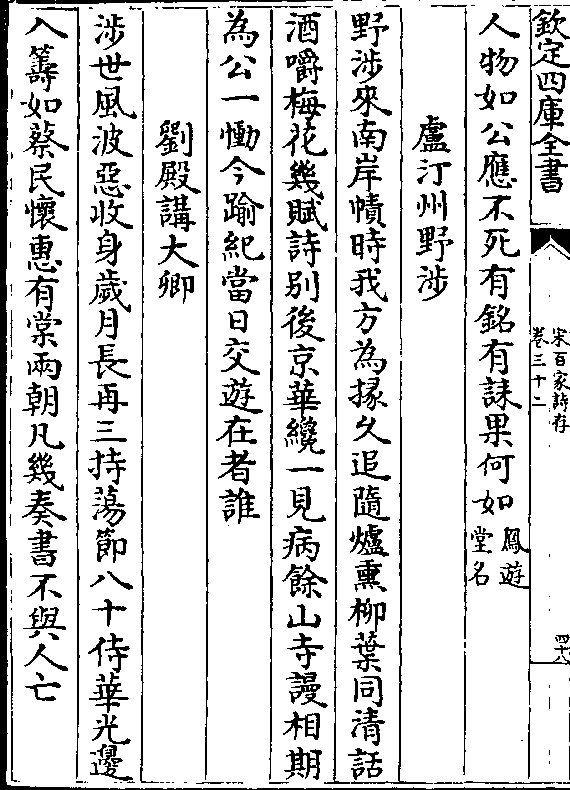 欽定四庫全書
宋百家詩存
卷三十二
四十八
人物如公應不死有銘有誄果何如鳳遊
堂名
盧汀州野涉
野涉來南岸幘時我方為掾久追隨爐熏柳葉同清話
酒嚼梅花幾賦詩别後京華纔一見病餘山寺謾相期
為公一慟今踰紀當日交遊在者誰
劉殿講大卿
涉世風波惡收身歲月長再三持蕩節八十侍華光邊
入籌如蔡民懷惠有棠兩朝凡幾奏書不與人亡